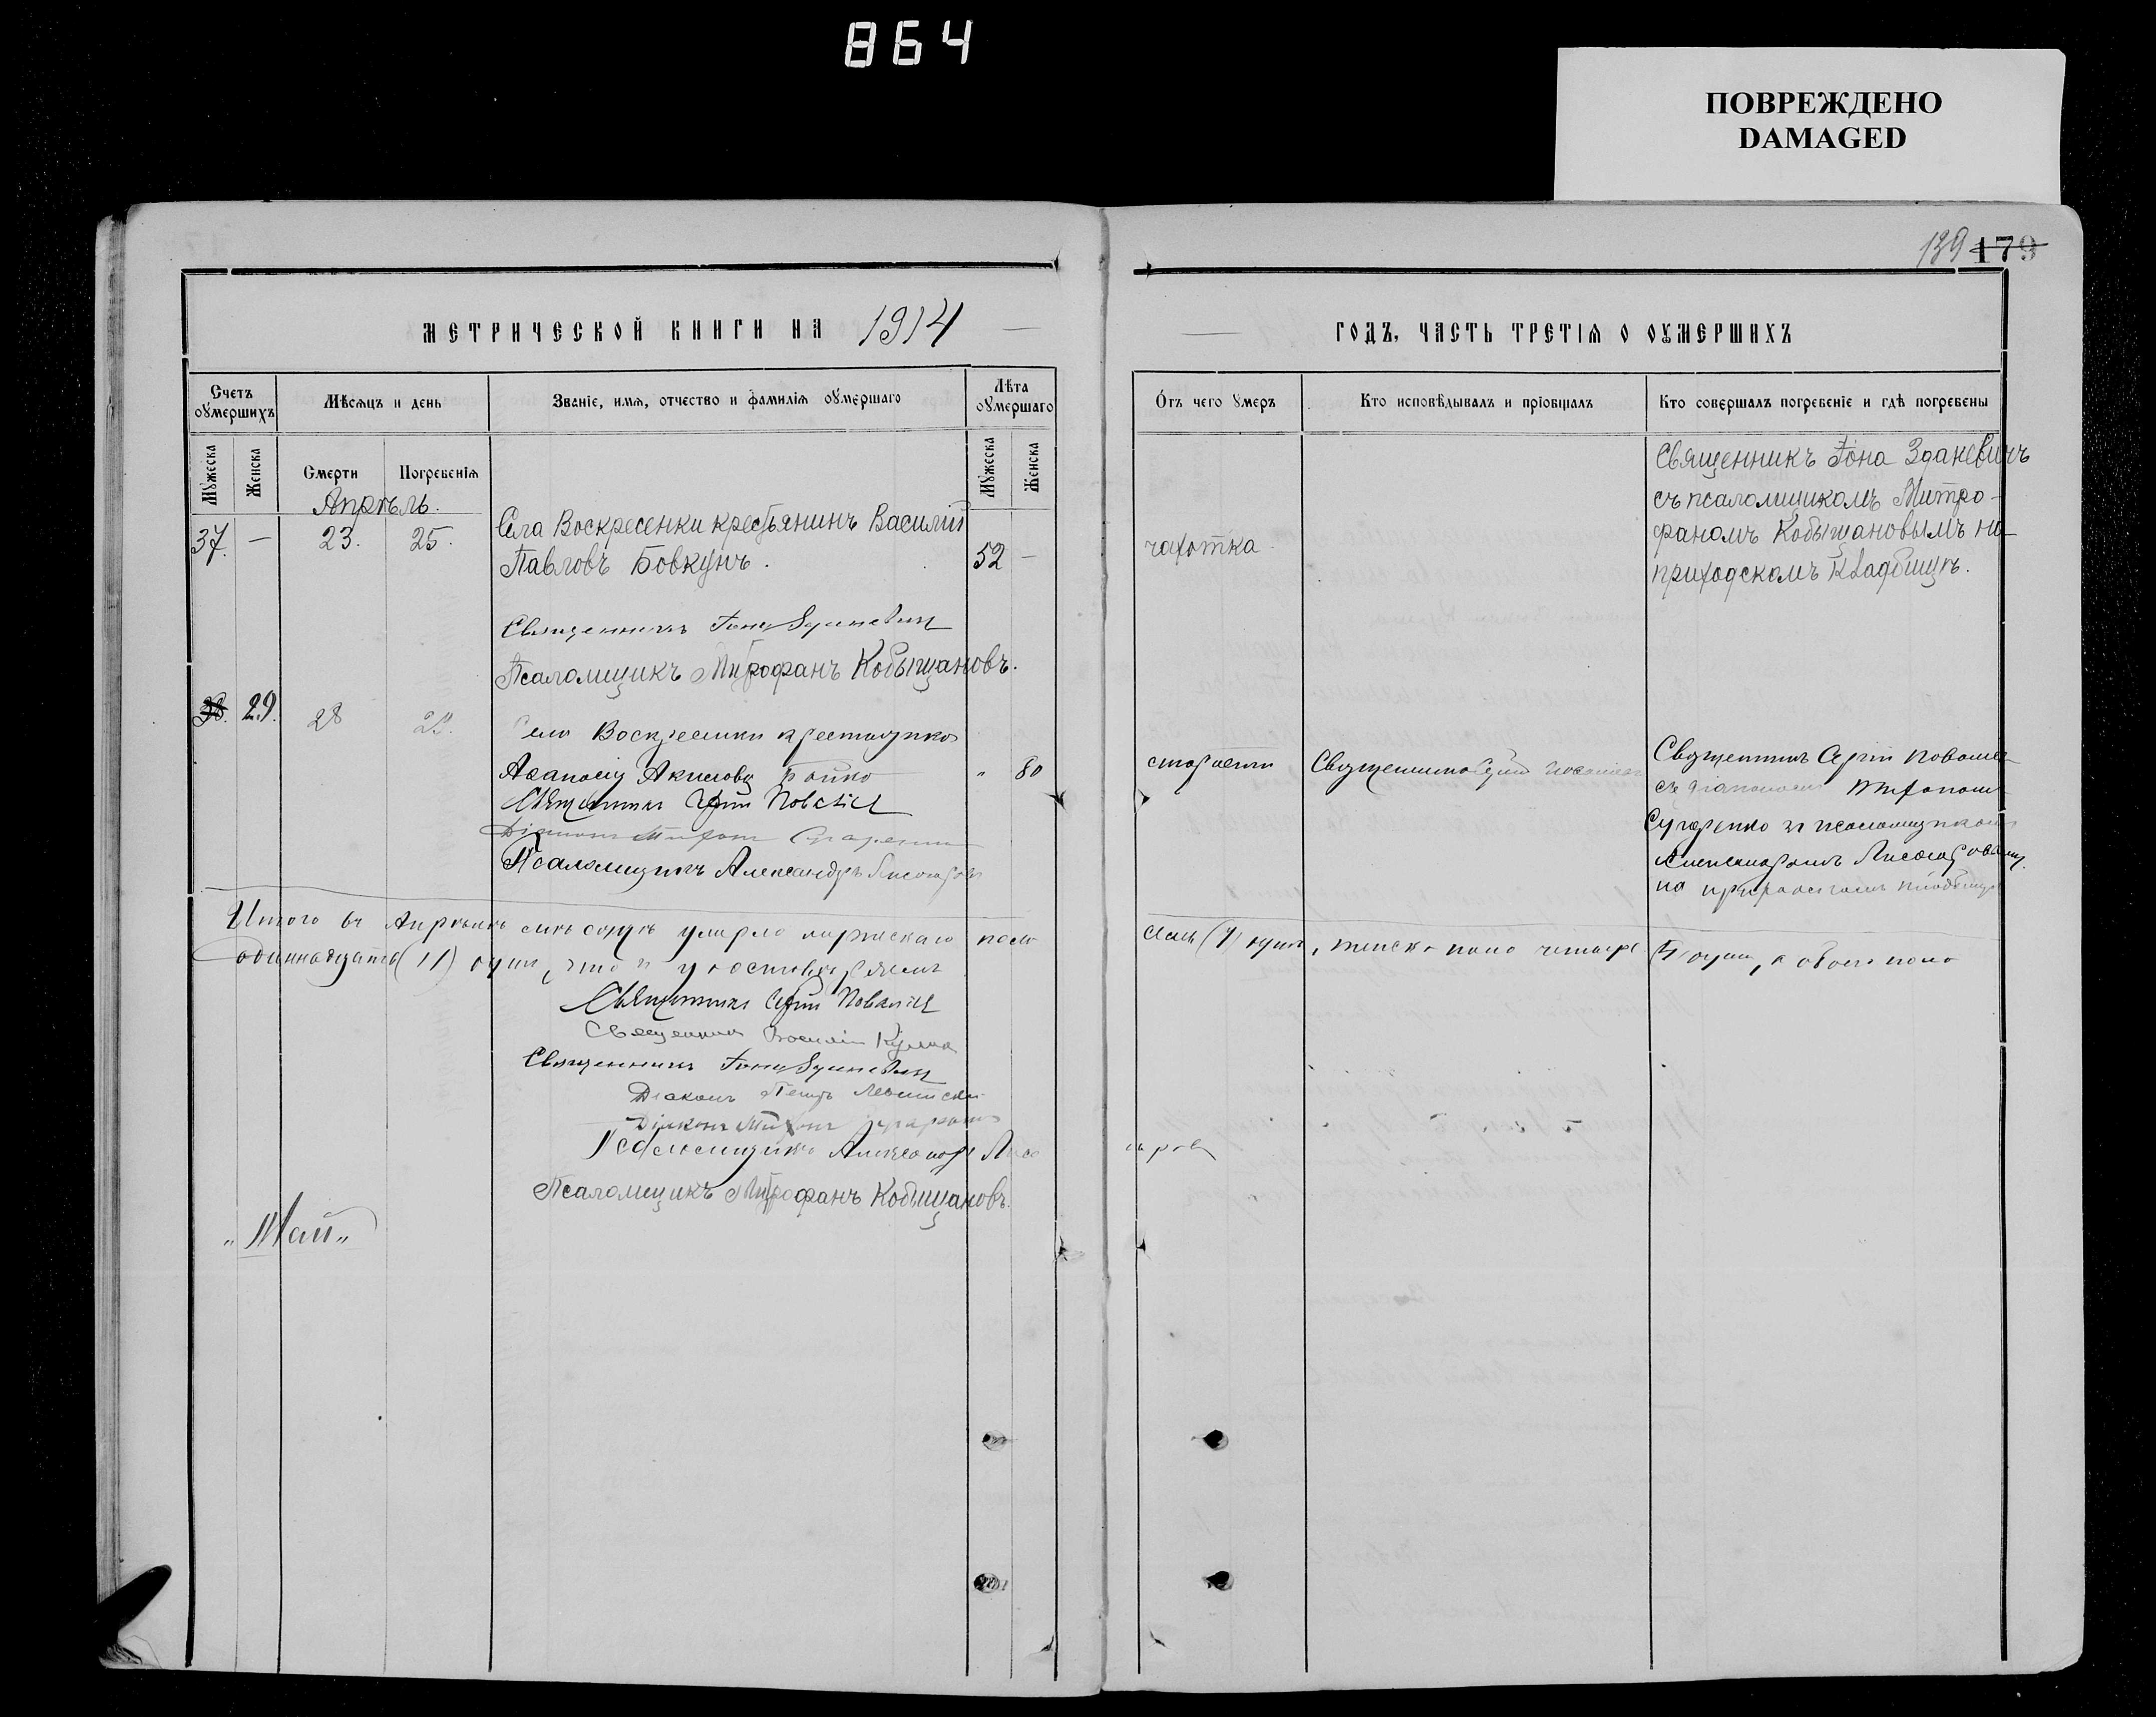 864
ПОВРЕЖДЕНО
DAMAGED
139 179
МЕТРИЧЕСКОЙ КНИГИ НА 1914
ГОДЪ, ЧАСТЬ ТРЕТІѦ О ОУМЕРШИХЪ
Счетъ оумершихъ
Мѣсѧцъ и день
Званіе, имѧ, отчество и фамилія оумершаго
Лѣта оумершаго
Отъ чего умеръ
Кто исповѣдывалъ и пріобщалъ
Кто совершалъ погребеніе и гдѣ погребены
Мужеска
Женска
Смерти
Погребеніѧ
Мужеска
Женска
Апрѣль.
37. — 23. 25.
Села Воскресенки крестьянинъ Василій
Павловъ Бовкунъ.
52 —
чахотка
Священникъ Іона Зданевичъ
съ псаломщикомъ Митро-
фаномъ Кобыщановымъ на
приходскомъ кладбищѣ.
Священникъ Іона Зданевичъ
Псаломщикъ Митрофанъ Кобыщановъ.
38. 29. 28 29.
Села Воскресенки крестьянка
Акимова Бойко
" 80
старости
Священникъ Сергій
Священникъ Сергій
съ діакономъ Тихономъ
и псаломщикомъ
Александромъ
на приходскомъ кладбищѣ
Священникъ Сергій
Діаконъ Тихонъ
Псаломщикъ Александръ
Итого въ Апрѣлѣ мѣсяцѣ умерло мужескаго пола
семь (7) душъ, женска пола четыре (4) души, а обоего пола
одиннадцать (11) душъ, что и удостовѣряемъ
Священникъ Сергій
Священникъ Василій
Священникъ Іона Зданевичъ
Діаконъ Петръ
Діаконъ Тихонъ
Псаломщикъ Александръ
Псаломщикъ Митрофанъ Кобыщановъ.
„Май„